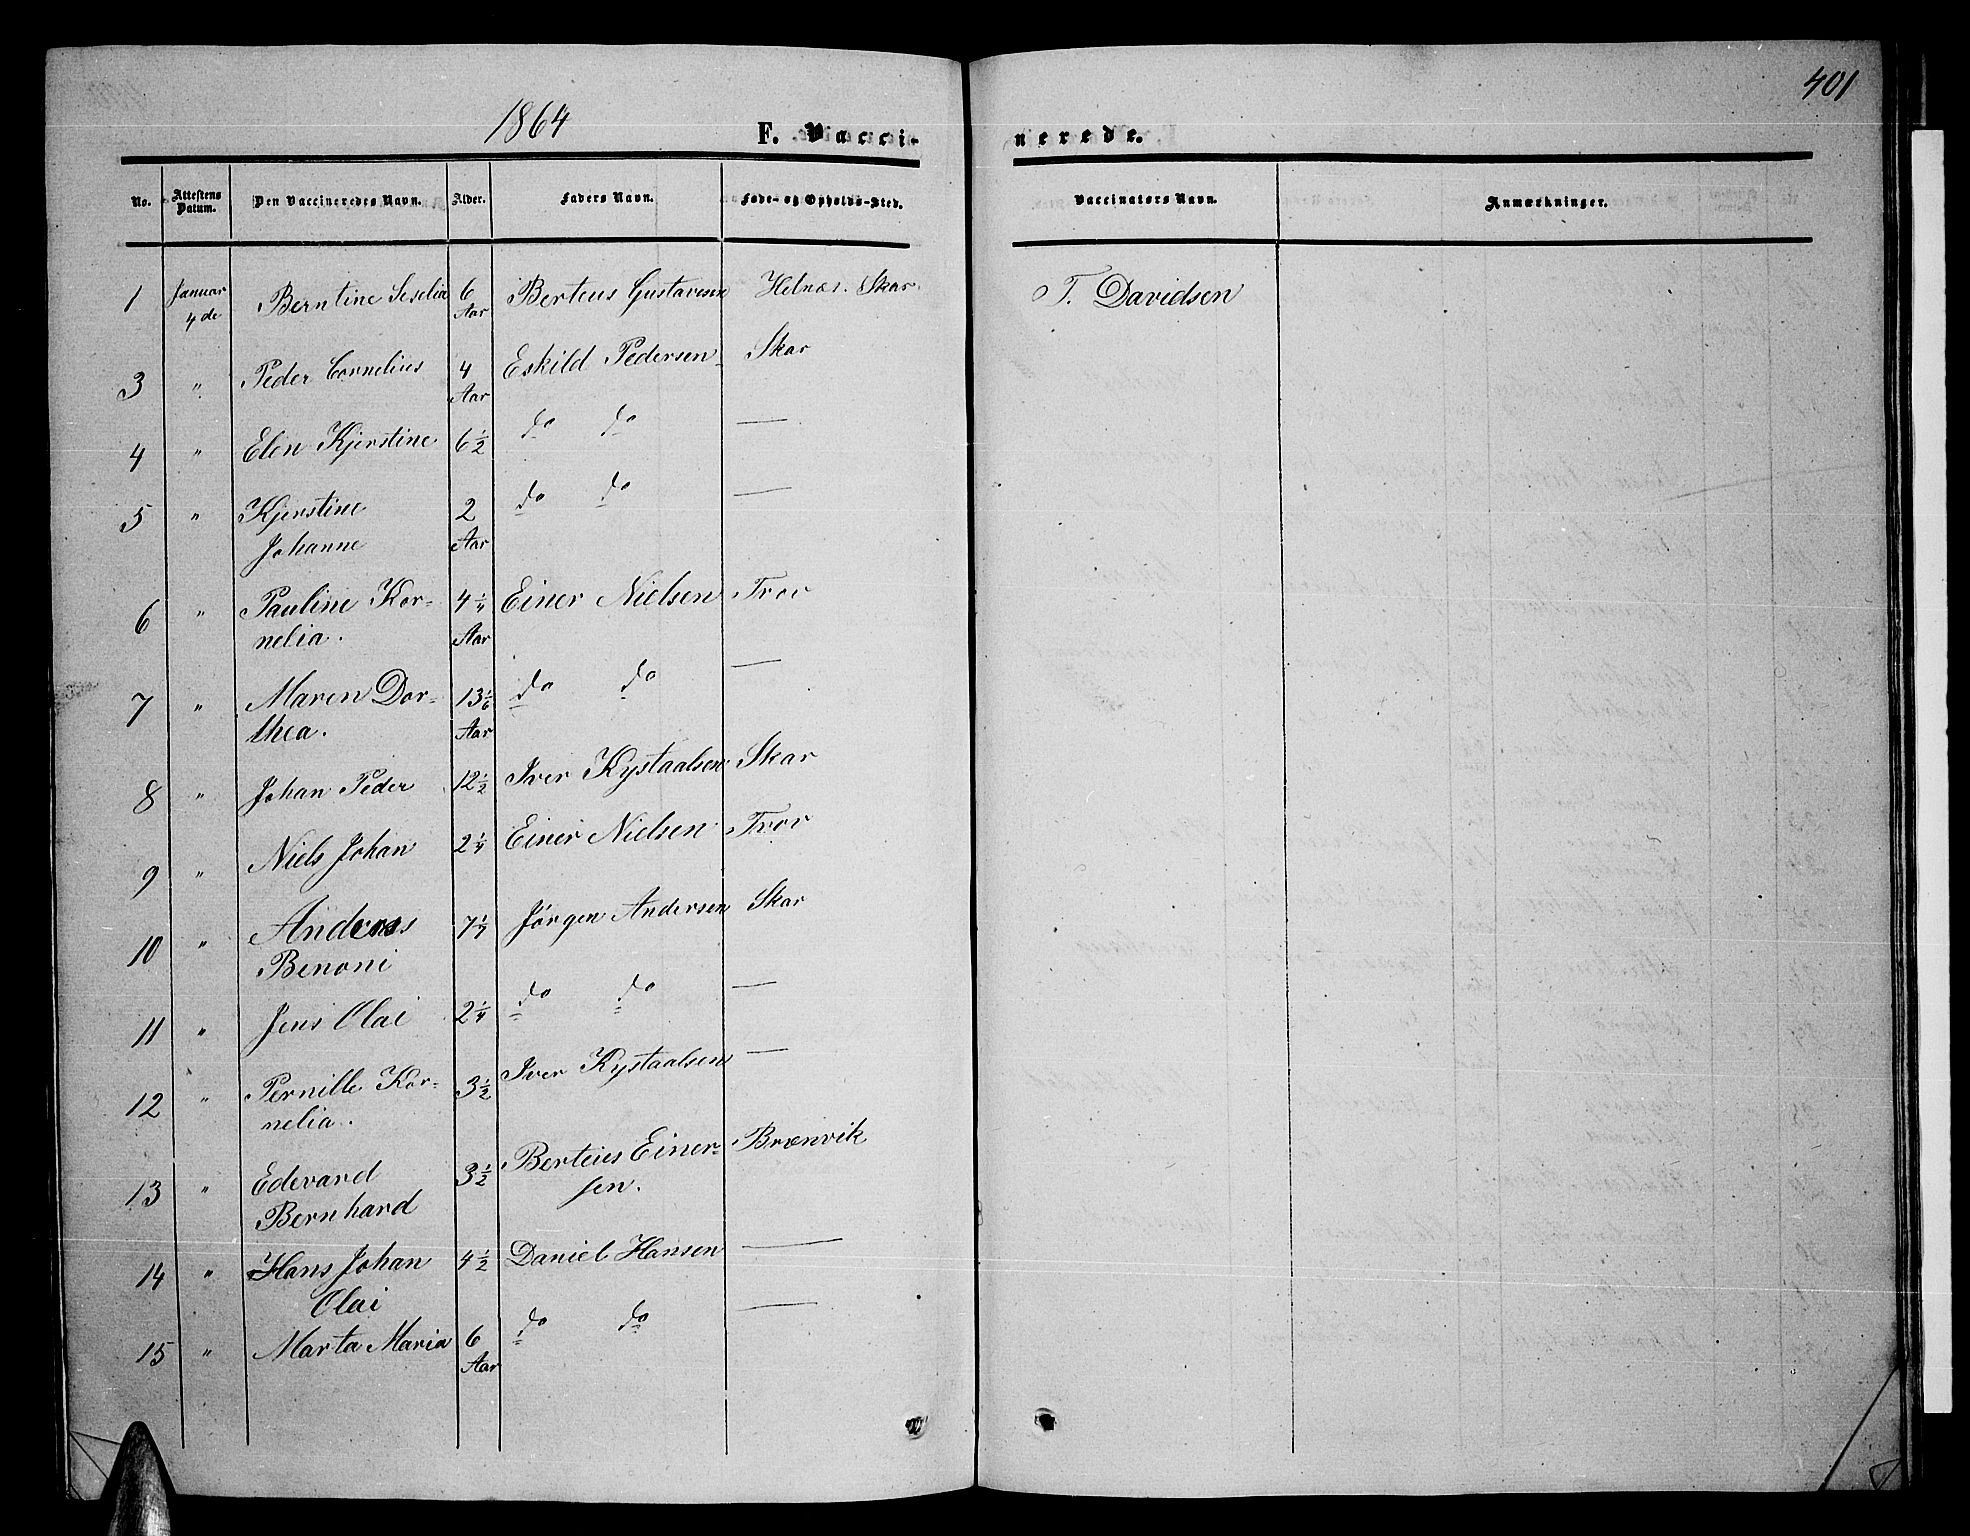 401
1864
F. Vacci-
nerede.
No. Attestens Datum. Den Vaccineredes Navn. Alder. Faders Navn. Føde- og Opholds-Sted. Vaccinators Navn. Anmærkninger.
1 Januar 4de Berntine Seselia 6 Aar Berteus Gustavsen Helnæs. Skar T. Davidsen
3 " Peder Cornelius 4 Aar Eskild Pedersen Skar
4 " Elen Kjerstine 6 1/2 do do —
5 " Kjerstine 2 do do —
Johanne Aar
6 " Pauline Kor- 4 1/4 Einer Nielsen Tror
nelia. Aar
7 " Maren Dor- 13 1/6 do do —
thea. Aar
8 " Johan Peder 12 1/2 Iver Kystaalsen Skar
9 " Niels Johan 2 1/4 Einer Nielsen Tror
10 " Anders 7 1/4 Jørgen Andersen Skar
Benoni
11 " Jens Olai 2 1/4 do do —
12 " Pernille Kor- 3 1/2 Iver Kystaalsen —
nelia.
13 " Edevard 3 1/2 Berteus Einer- Brænvik
Bernhard sen.
14 " Hans Johan 4 1/2 Daniel Hansen —
Olai
15 " Marta Maria 6 do do —
Aar